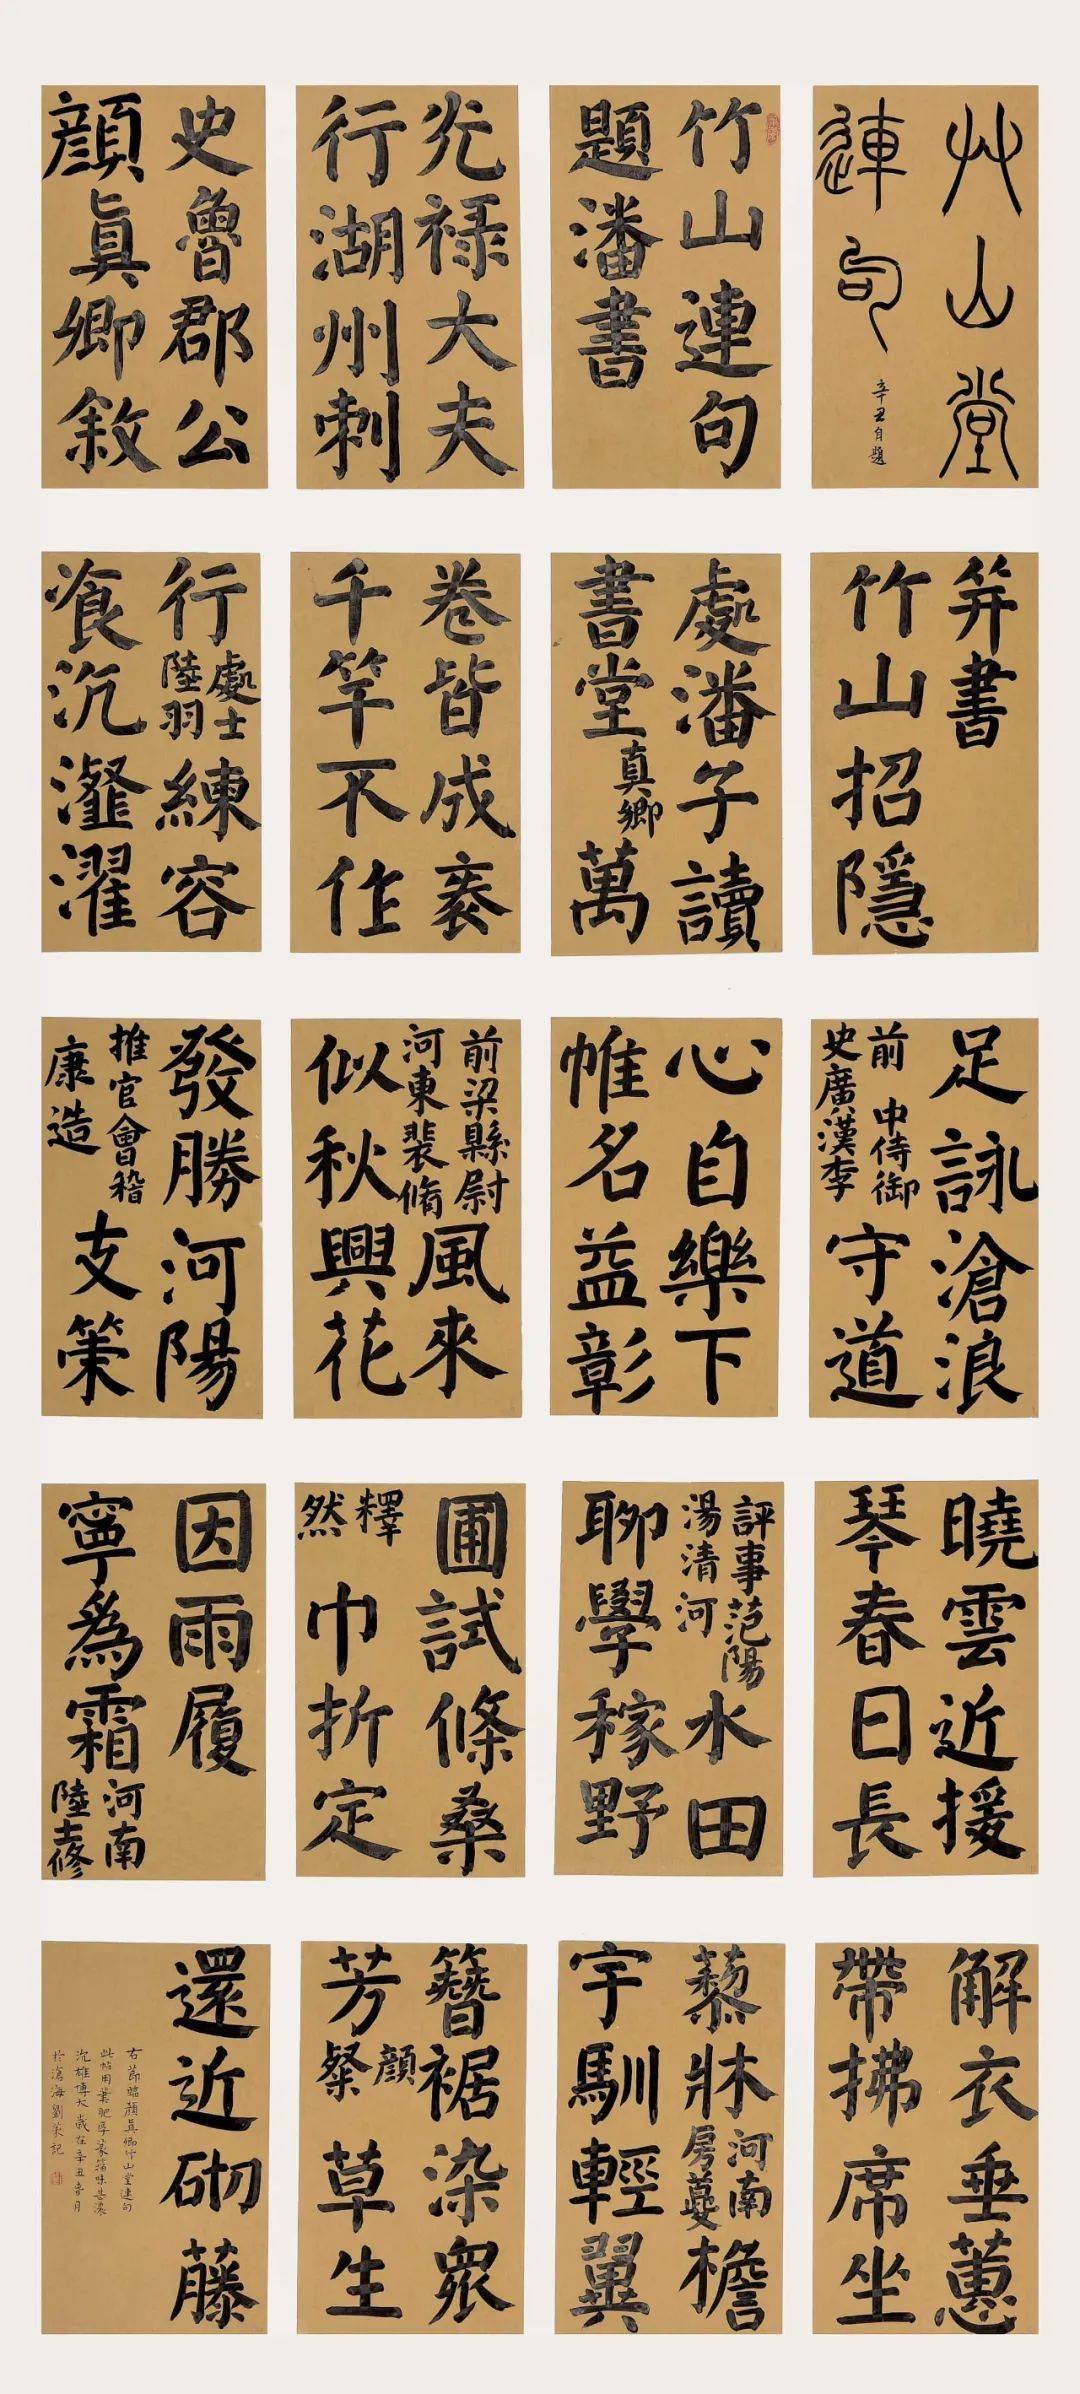 竹山堂
連句
辛丑自題
竹山連句
題潘書
光禄大夫
行湖州刺
史魯郡公
顏真卿敘
并書
竹山招隱
處潘子讀
書堂真卿萬
卷皆成袠
千竿不作
行處士陸羽練容
飡沆瀣濯
足詠滄浪
前中侍御
史廣漢李
守道
心自樂下
帷名益彰
前梁縣尉
河東裴脩
風來
似秋興花
發勝河陽
推官會稽
康造
支策
曉雲近援
琴春日長
評事范陽
湯清河
水田
聊學稼野
圃試條桑
釋然
巾折定
因雨履
寧為霜
河南
陸士修
解衣垂蕙
帶拂席坐
藜牀河南房夔檐
宇馴輕翼
簪裾染眾
芳顏粲草生
還近砌藤
右節臨顏真卿竹山堂連句
此帖用筆肥厚篆籀味甚濃
沉雄博大歲在辛丑
於滄海劉策記